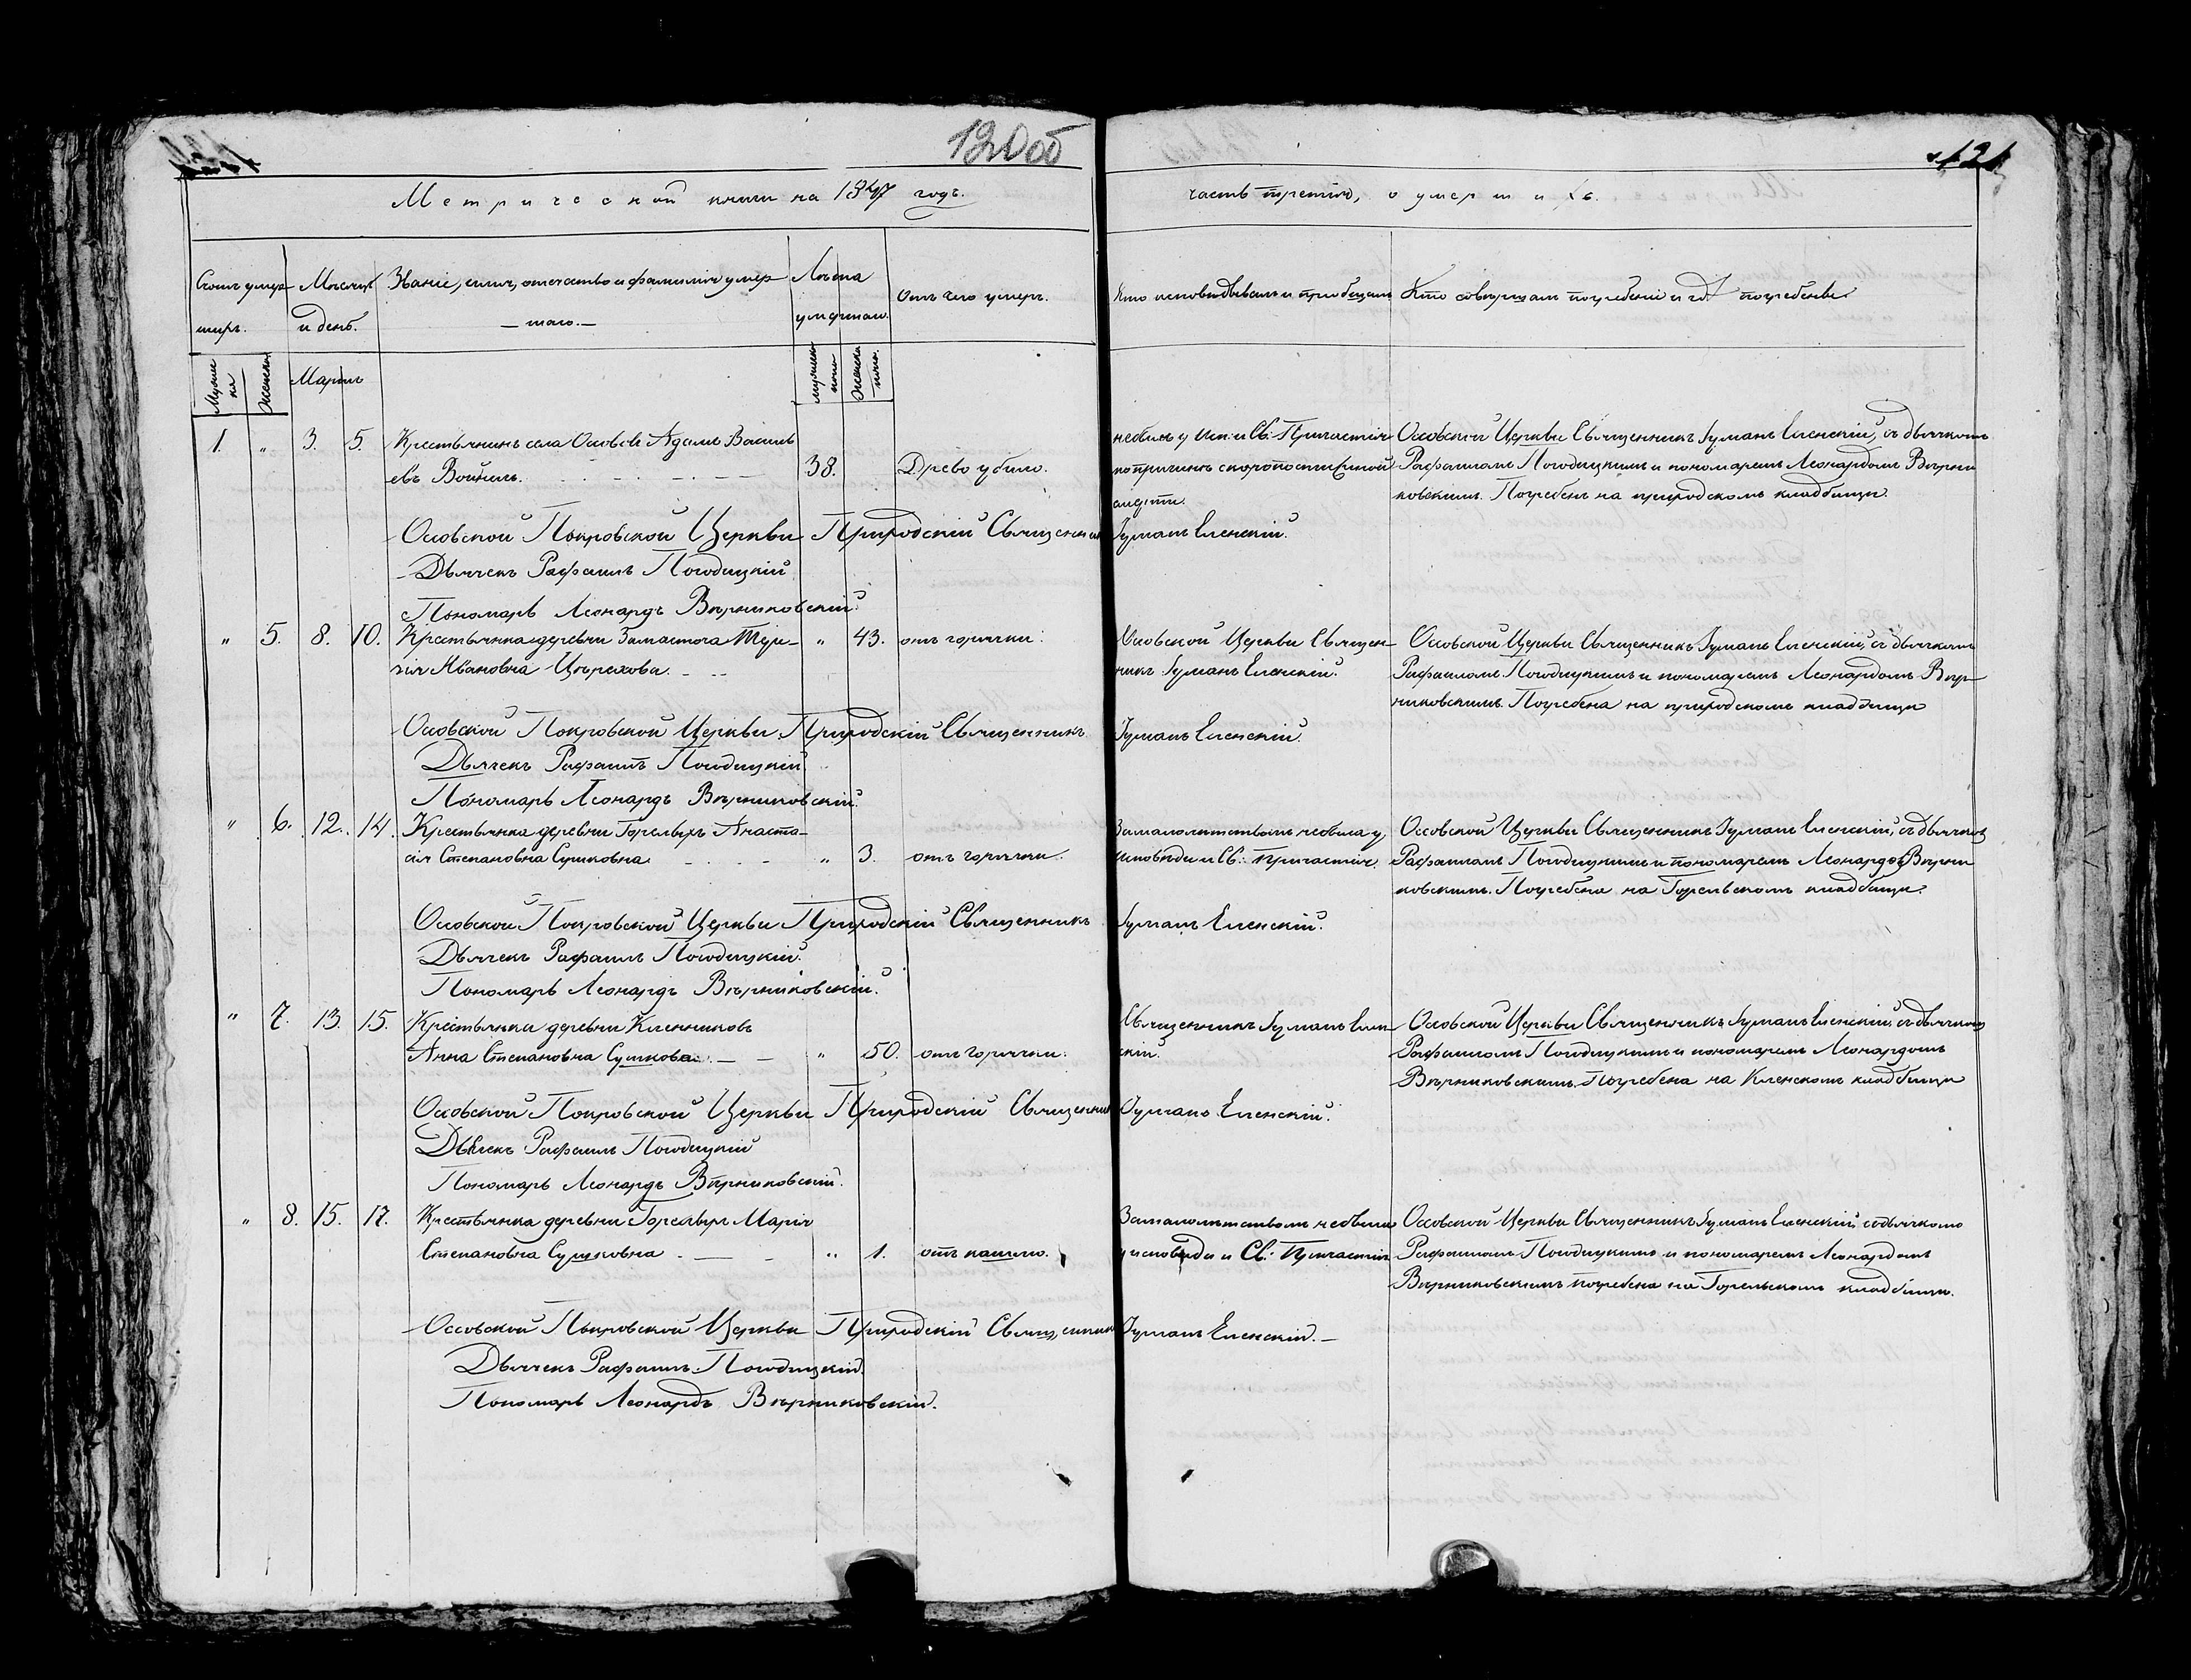 120 об
121
Метрической книги на 1847 годъ.
часть третія, о умершихъ.
Счетъ умер-
шихъ.
Мѣсяцъ
и день.
Званіе, имя, отечество и фамилія умер-
шаго.
Лѣта
умершаго.
Отъ чего умеръ.
Кто исповѣдывалъ и пріобщалъ
Кто совершалъ погребеніе и гдѣ погребены
Муже-
ска
Женска
Мартъ
мужеска
пола
Женска
пола.
1. " 3. 5. Крестьянинъ села Осовой Адамъ Василь
евъ 38. Древо убило.
небылъ у Исп: и Св: Причастія
по причинѣ скоропостижной
смерти.
Осовской Церкви Священникъ Іуліанъ Еленскій, съ дьячкомъ
Рафаиломъ Погодицкимъ и пономаремъ Леонардомъ Вѣрни
ковскимъ. Погребенъ на приходскомъ кладбищѣ.
Осовской Покровской Церкви Приходскій Священникъ Іуліанъ Еленскій.
Дьячекъ Рафаилъ Погодицкій
Пономарь Леонардъ Вѣрниковскій.
" 5. 8. 10. Крестьянка деревни
Ивановна 43. отъ горячки.
Осовской Церкви Священ-
никъ Іуліанъ Еленскій.
Осовской Церкви Священникъ Іуліанъ Еленскій, съ дьячкомъ
Рафаиломъ Погодицкимъ и пономаремъ Леонардомъ Вѣр-
никовскимъ. Погребена на приходскомъ кладбищѣ
Осовской Покровской Церкви Приходскій Священникъ Іуліанъ Еленскій.
Дьячекъ Рафаилъ Погодицкій.
Пономарь Леонардъ Вѣрниковскій.
" 6. 12. 14. Крестьянка деревни Горелыхъ Анаста-
сія Степановна Сушковна " 3. отъ горячки.
За малолѣтствомъ небыла у
исповѣди и Св: Причастія.
Осовской Церкви Священникъ Іуліанъ Еленскій, съ дьячкомъ
Рафаиломъ Погодицкимъ и пономаремъ Леонардомъ Вѣрни
ковскимъ. Погребена на Горельскомъ кладбищѣ.
Осовской Покровской Церкви Приходскій Священникъ Іуліанъ Еленскій.
Дьячекъ Рафаилъ Погодицкій.
Пономарь Леонардъ Вѣрниковскій.
" 7. 13. 15. Крестьянка деревни Кленниковъ
Анна Степановна Сушкова " 50. отъ горячки.
Священникъ Іуліанъ Елен
скій.
Осовской Церкви Священникъ Іуліанъ Еленскій, съ дьячкомъ
Рафаиломъ Погодицкимъ и пономаремъ Леонардомъ
Вѣрниковскимъ. Погребена на Кленскомъ кладбищѣ
Осовской Покровской Церкви Приходскій Священникъ Іуліанъ Еленскій.
Дьячекъ Рафаилъ Погодицкій
Пономарь Леонардъ Вѣрниковскій.
" 8. 15. 17. Крестьянка деревни Горелыхъ Марія
Степановна Сушковна " 1. отъ кашлю.
За малолѣтствомъ небыла
у исповѣди и Св: Причастія
Осовской Церкви Священникъ Іуліанъ Еленскій, съ дьячкомъ
Рафаиломъ Погодицкимъ и пономаремъ Леонардомъ
Вѣрниковскимъ погребена на Горельскомъ кладбищѣ.
Осовской Покровской Церкви Приходскій Священникъ Іуліанъ Еленскій.
Дьячекъ Рафаилъ Погодицкій.
Пономарь Леонардъ Вѣрниковскій.